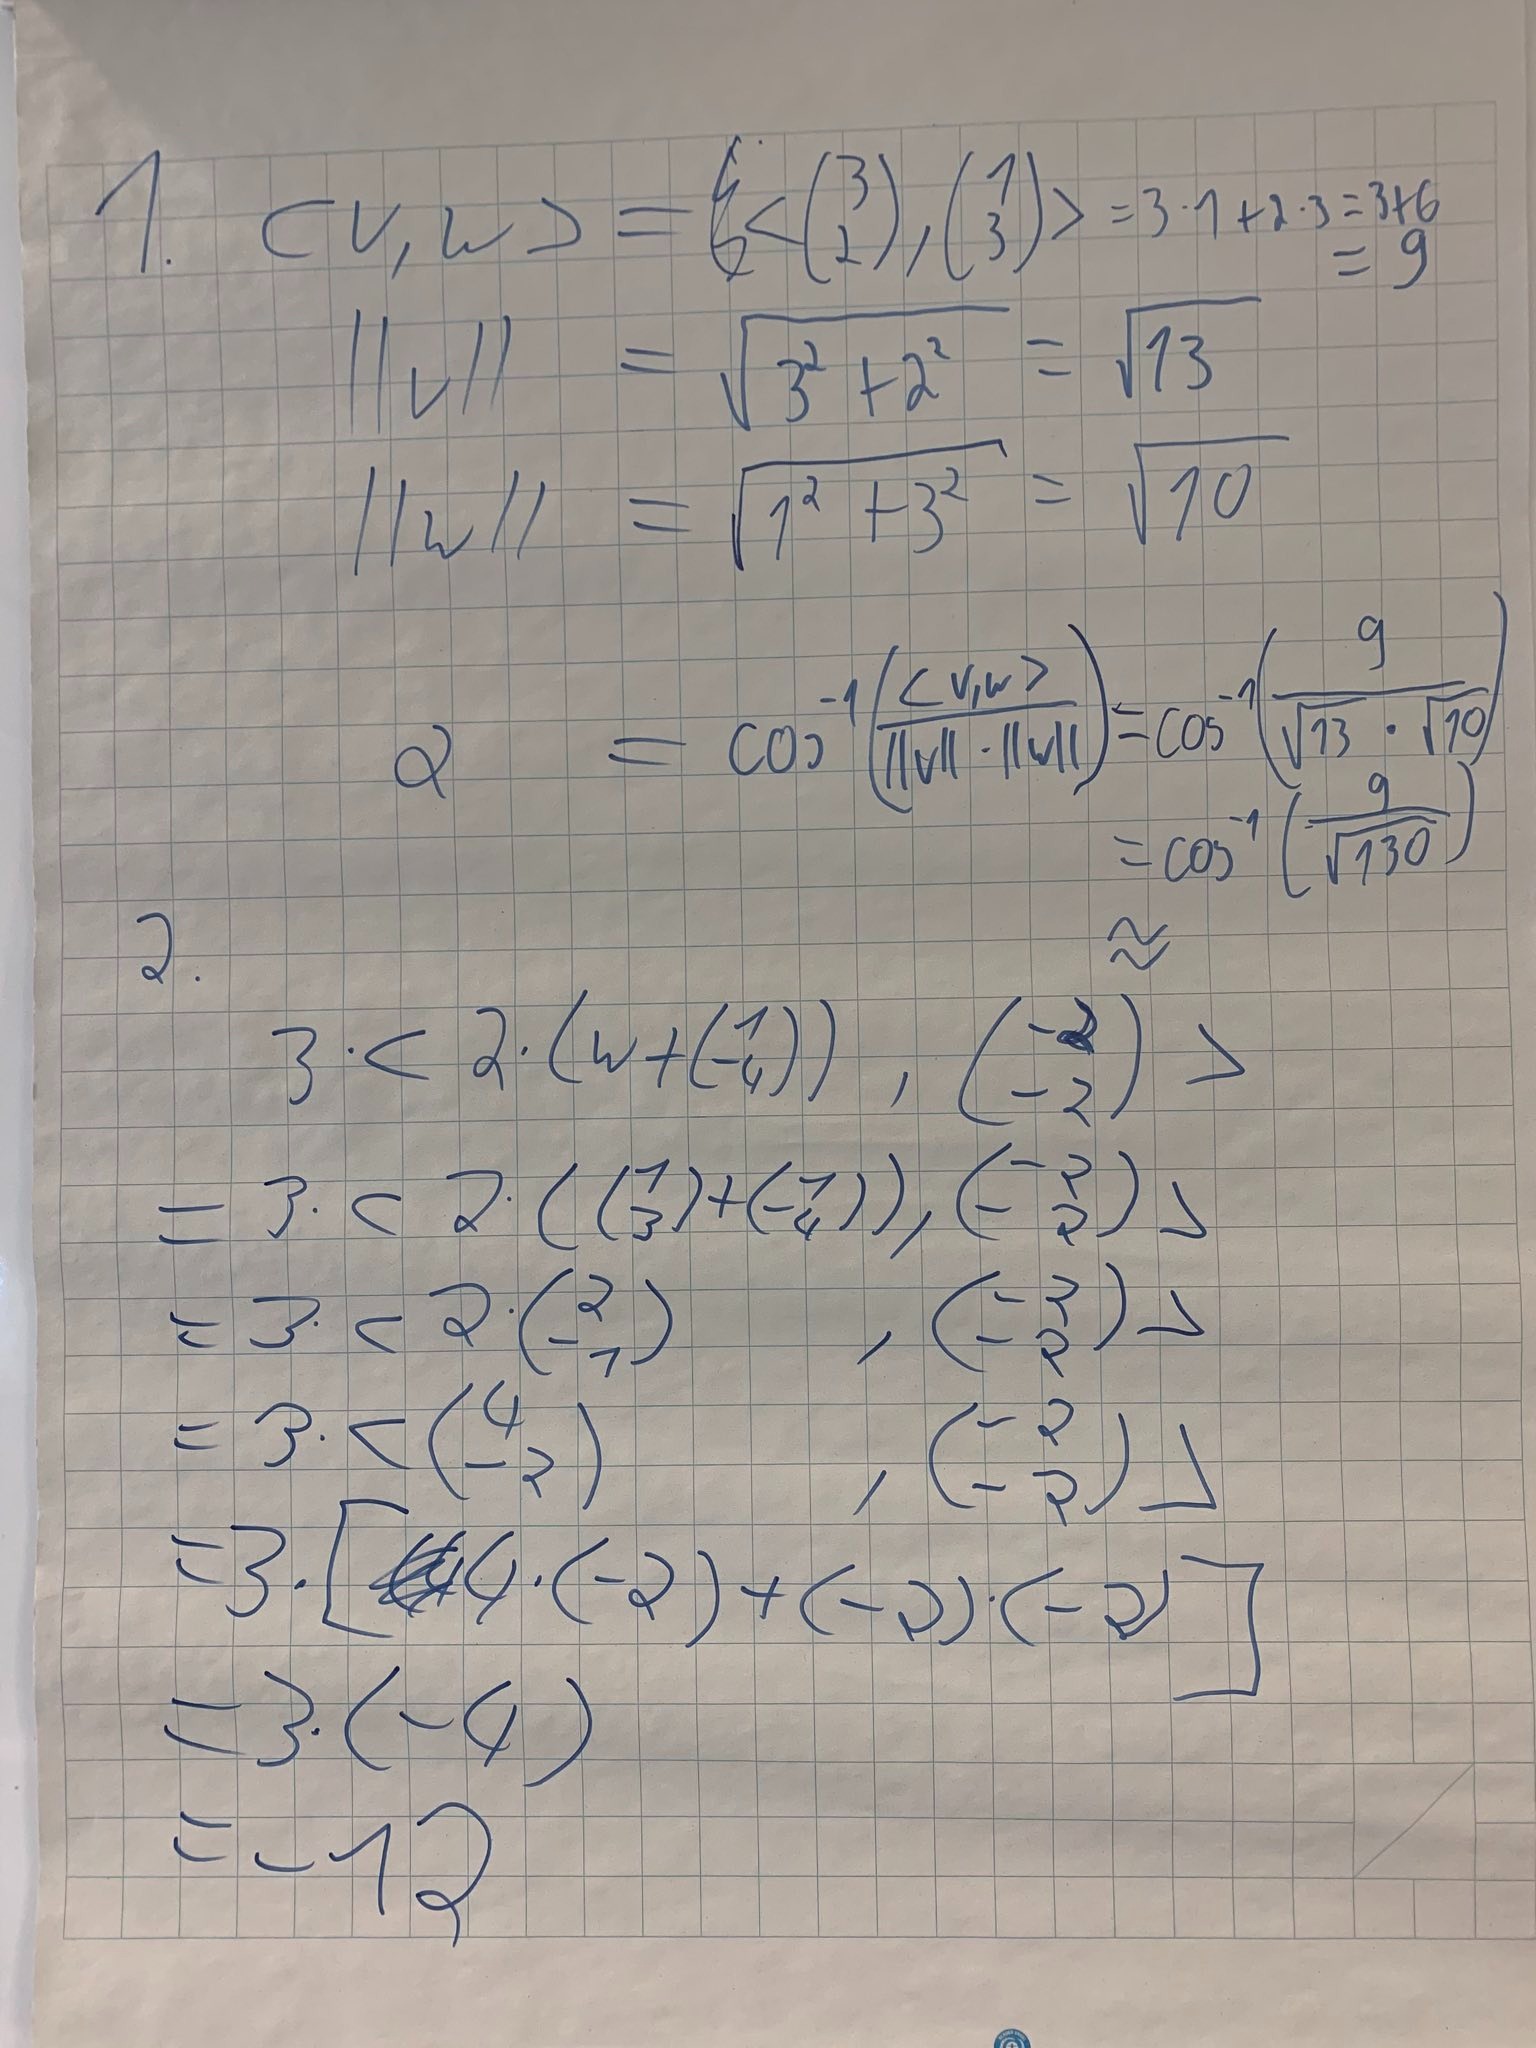 1. <v,w> = <(3 2),(1 3)> = 3·1+2·3=3+6
= 9
||v|| = √(3²+2²) = √13
||w|| = √(1²+3²) = √10
α = cos⁻¹(<v,w>/(||v||·||w||)) = cos⁻¹(9/(√13·√10))
= cos⁻¹(9/√130)
≈
2.
3·<2·(w+(1 -4)), (-2 -2)>
= 3·<2·((1 3)+(1 -4)), (-2 -2)>
= 3·<2·(2 -1), (-2 -2)>
= 3·<(4 -2), (-2 -2)>
= 3·[4·(-2)+(-2)·(-2)]
= 3·(-4)
= -12